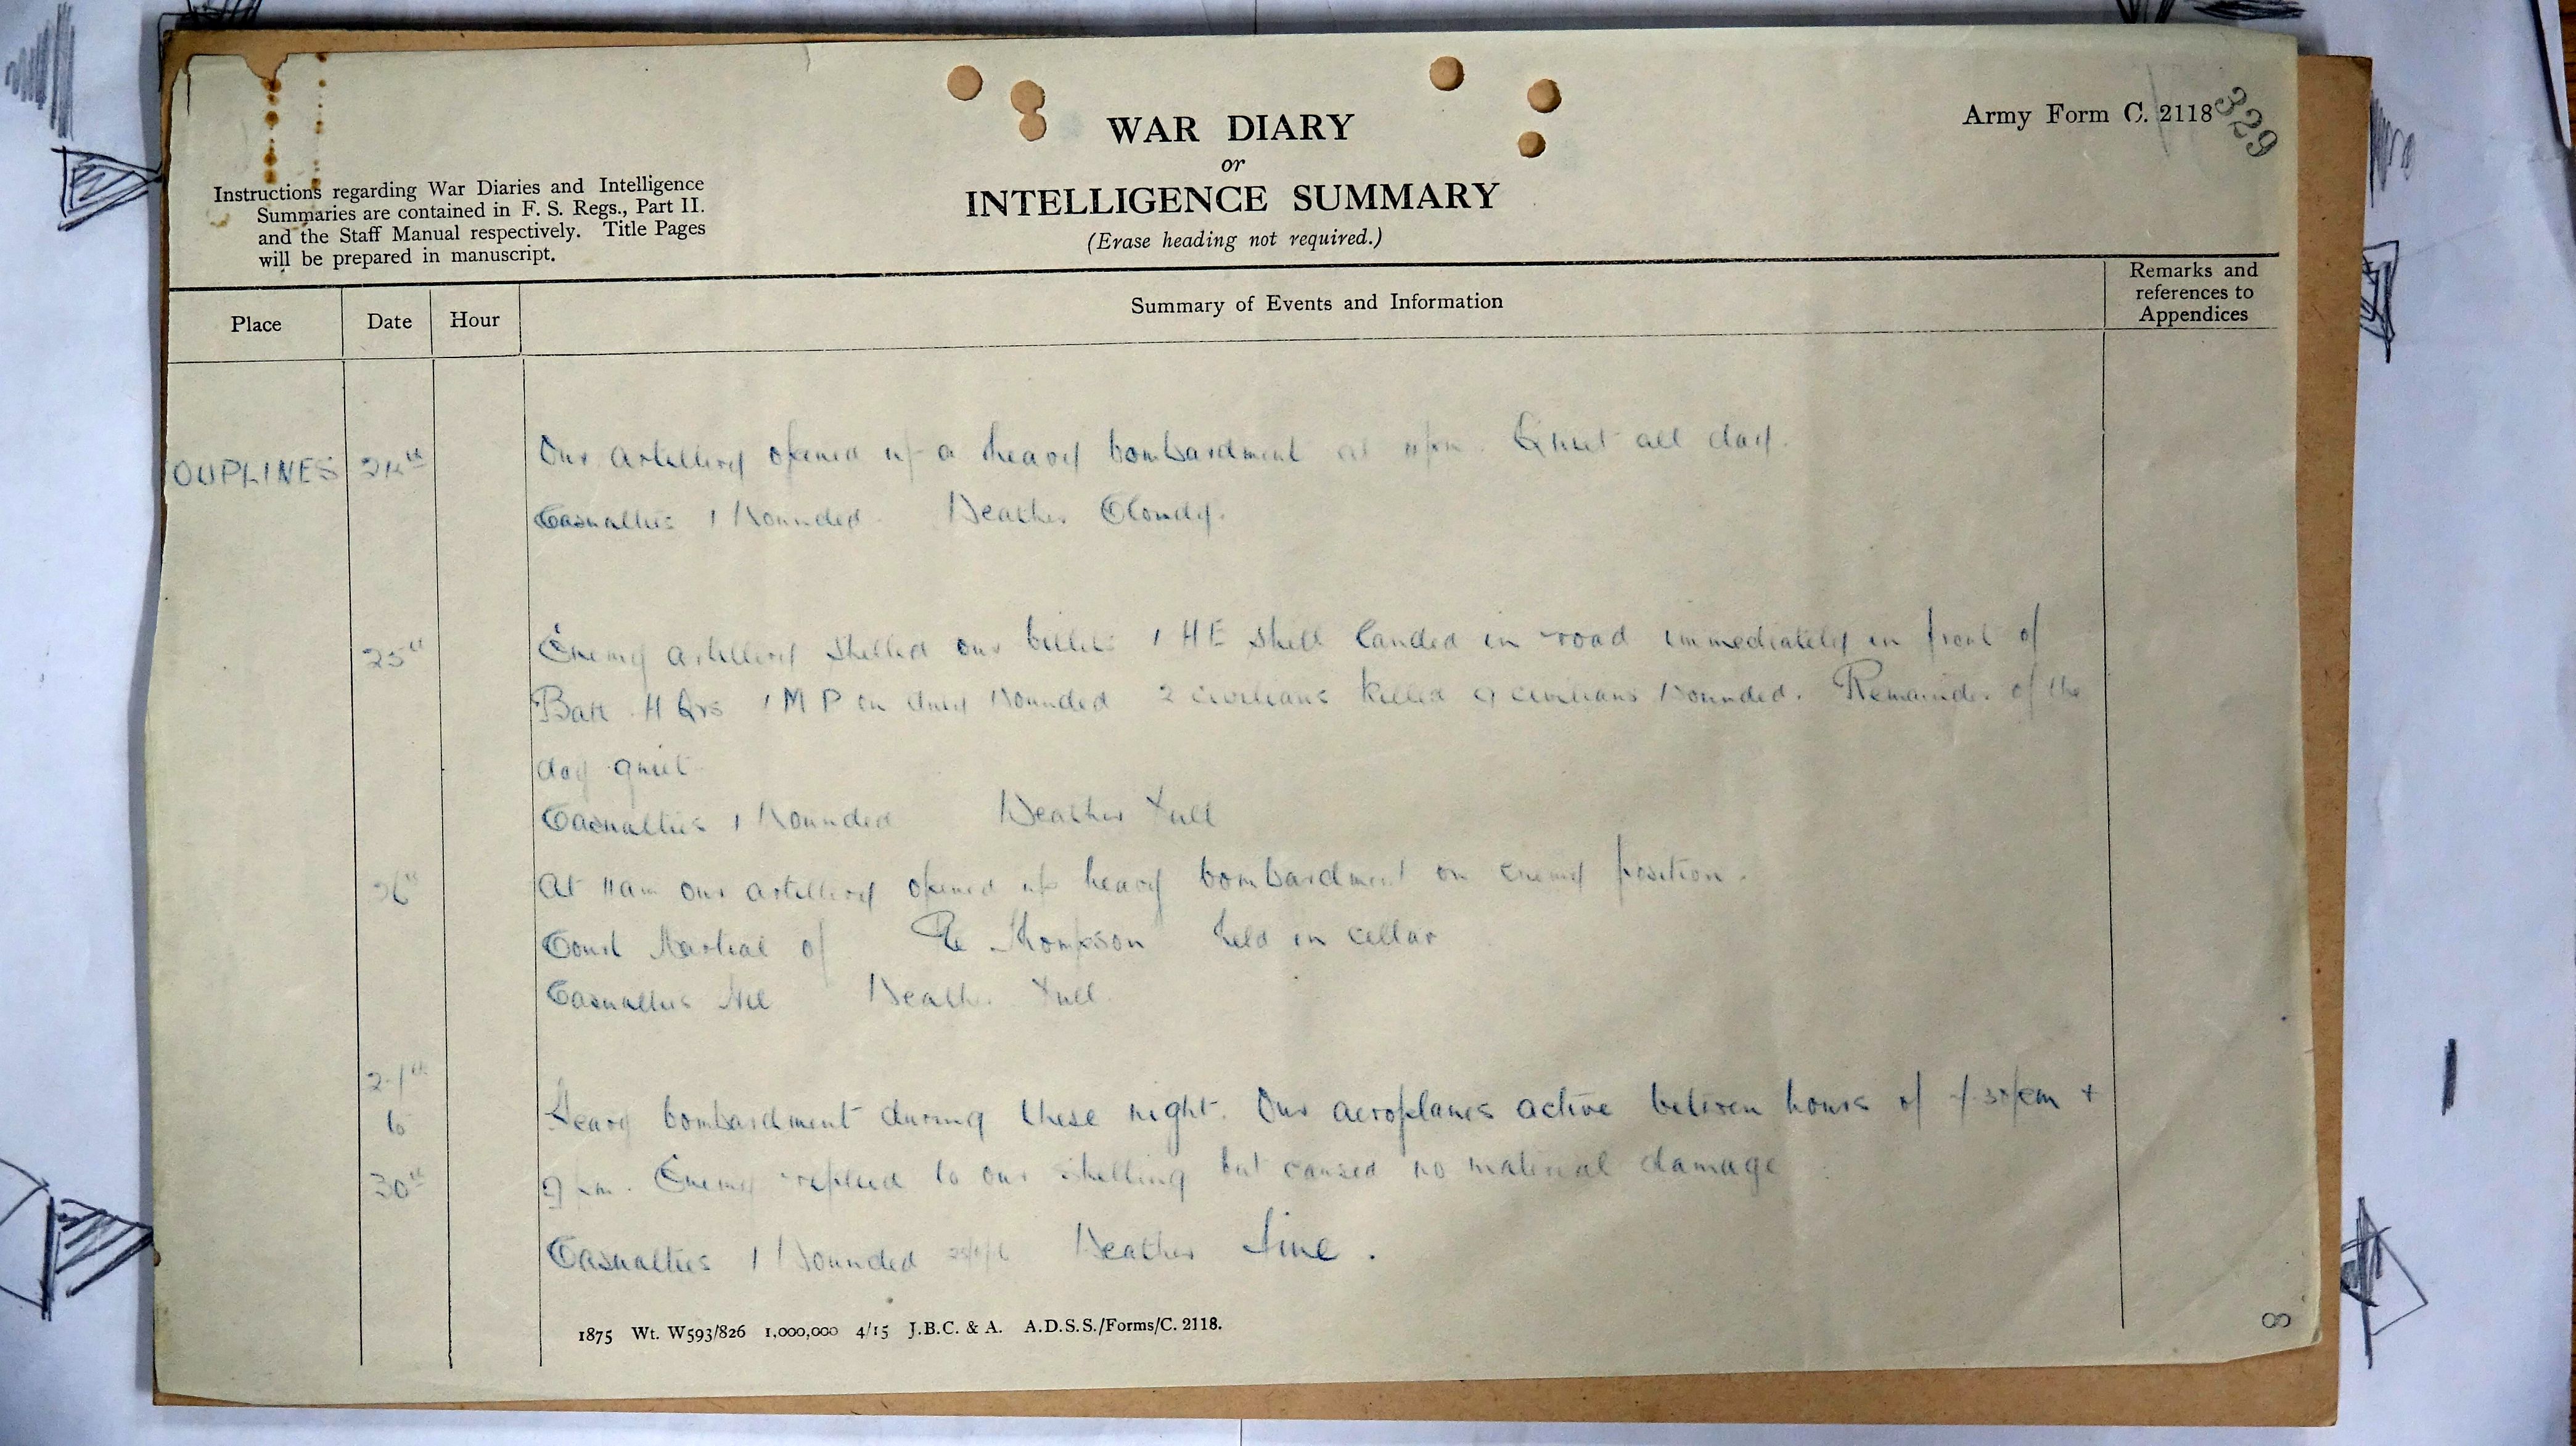 Army Form C. 2118
329
WAR DIARY
or
INTELLIGENCE SUMMARY
(Erase heading not required.)
Instructions regarding War Diaries and Intelligence
Summaries are contained in F. S. Regs., Part II.
and the Staff Manual respectively. Title Pages
will be prepared in manuscript.
Place Date Hour Summary of Events and Information Remarks and
references to
Appendices
OUPLINES 24th Our artillery opened up a heavy bombardment at Quiet all day.
Casualties 1 Wounded. Weather Cloudy.
25th Enemy artillery shelled our billets 1 HE shell landed in road immediately in front of
Batt H Qrs 1 M P on duty wounded 2 civilians killed 9 civilians wounded. Remainder of the
day quiet
Casualties 1 Wounded Weather Dull
26th At 11am our artillery opened up heavy bombardment on enemy position.
Court Martial of Pte Thompson held in cellar
Casualties Nil Weath. Dull.
27th
to Heavy bombardment during these night. Our aeroplanes active between hours of 7.30pm +
30th 9 pm. Enemy replied to our shelling but caused no material damage
Casualties 1 Wounded Weather Fine.
1875 Wt. W593/826 1,000,000 4/15 J.B.C. & A. A.D.S.S./Forms/C. 2118.
8